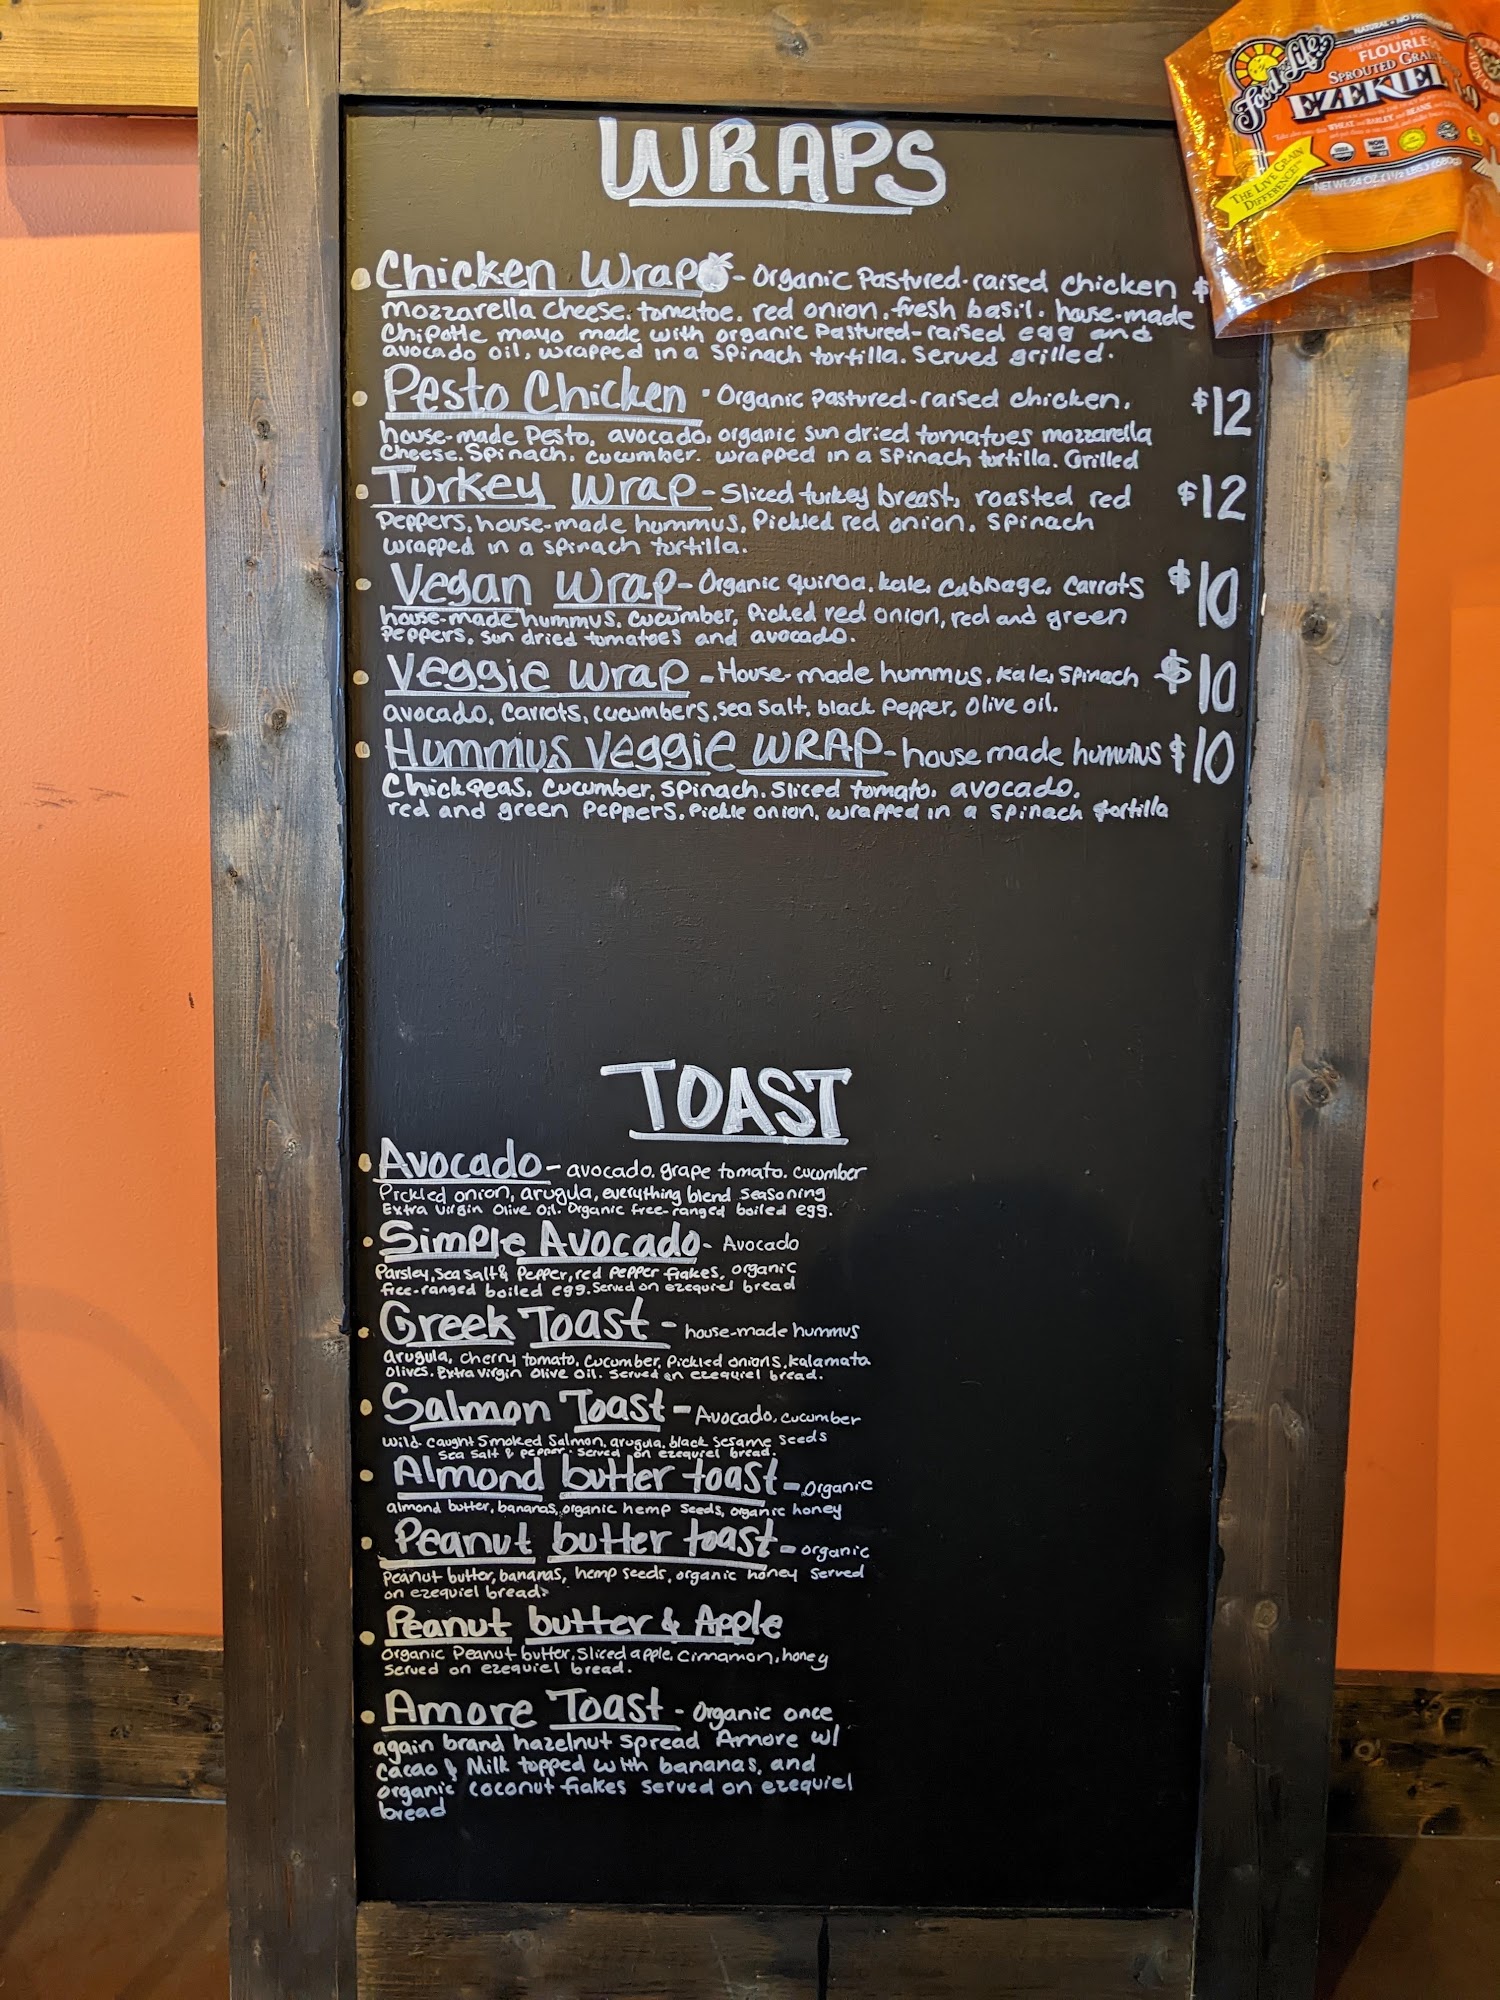 WRAPS
Chicken Wrap - Organic Pastured-raised chicken $
mozzarella cheese. tomatoe. red onion. fresh basil. house-made
Chipotle mayo made with organic Pastured-raised egg and
avocado oil, wrapped in a spinach tortilla. Served grilled.
Pesto Chicken - Organic pastured-raised chicken. $12
house-made Pesto. avocado. organic sun dried tomatoes mozzarella
Cheese. Spinach. cucumber. wrapped in a spinach tortilla. Grilled
Turkey Wrap - Sliced turkey breast, roasted red $12
Peppers. house-made hummus. Pickled red onion. Spinach
wrapped in a spinach tortilla.
Vegan Wrap - Organic quinoa. kale, cabbage, carrots $10
house-made hummus. cucumber, Picked red onion, red and green
Peppers. sun dried tomatoes and avocado.
Veggie Wrap - House-made hummus. kale, spinach $10
avocado. Carrots, cucumbers, sea salt, black Pepper, Olive oil.
Hummus Veggie WRAP - house made hummus $10
Chickpeas. cucumber, spinach. sliced tomato. avocado.
red and green peppers. Pickle onion. wrapped in a spinach tortilla
TOAST
Avocado - avocado. grape tomato. cucumber
Pickled onion, arugula, everything blend seasoning
Extra Virgin Olive Oil. Organic free-ranged boiled egg.
Simple Avocado - Avocado
Parsley, Sea salt & Pepper, red pepper flakes, organic
free-ranged boiled egg. Served on ezequiel bread
Greek Toast - house-made hummus
arugula, cherry tomato, cucumber, Pickled onions, kalamata
Olives. Extra virgin Olive Oil. Served on ezequiel bread.
Salmon Toast - Avocado, cucumber
Wild-caught Smoked Salmon, arugula, black sesame seeds
Sea salt & pepper. served on ezequiel bread.
Almond butter toast - Organic
almond butter, bananas, organic hemp seeds, organic honey
Peanut butter toast - organic
Peanut butter, bananas, hemp seeds, organic honey Served
on ezequiel bread.
Peanut butter & Apple
Organic Peanut butter, Sliced apple, Cinnamon, honey
Served on ezequiel bread.
Amore Toast - Organic once
again brand hazelnut spread Amore w/
cacao & Milk topped with bananas, and
organic coconut flakes served on ezequiel
bread
Food for Life
FLOURLESS
SPROUTED GRAIN
EZEKIEL 4:9
THE LIVE GRAIN
DIFFERENCE!
NET WT. 24 OZ. (1½ LBS.) (680g)